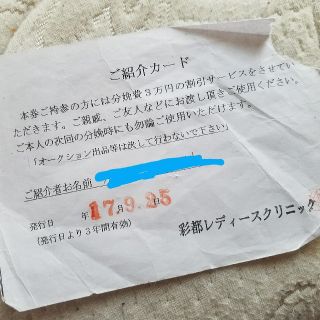 ご紹介カード
本券ご持参の方には分娩費3万円の割引サービスをさせてい
ただきます。ご親戚、ご友人などにお渡し頂きご使用ください。
ご本人の次回の分娩時にも勿論ご使用いただけます。
「オークション出品等は決して行わないで下さい」
ご紹介者お名前
発行日 年17月9.25日
(発行日より3年間有効)
彩都レディースクリニック